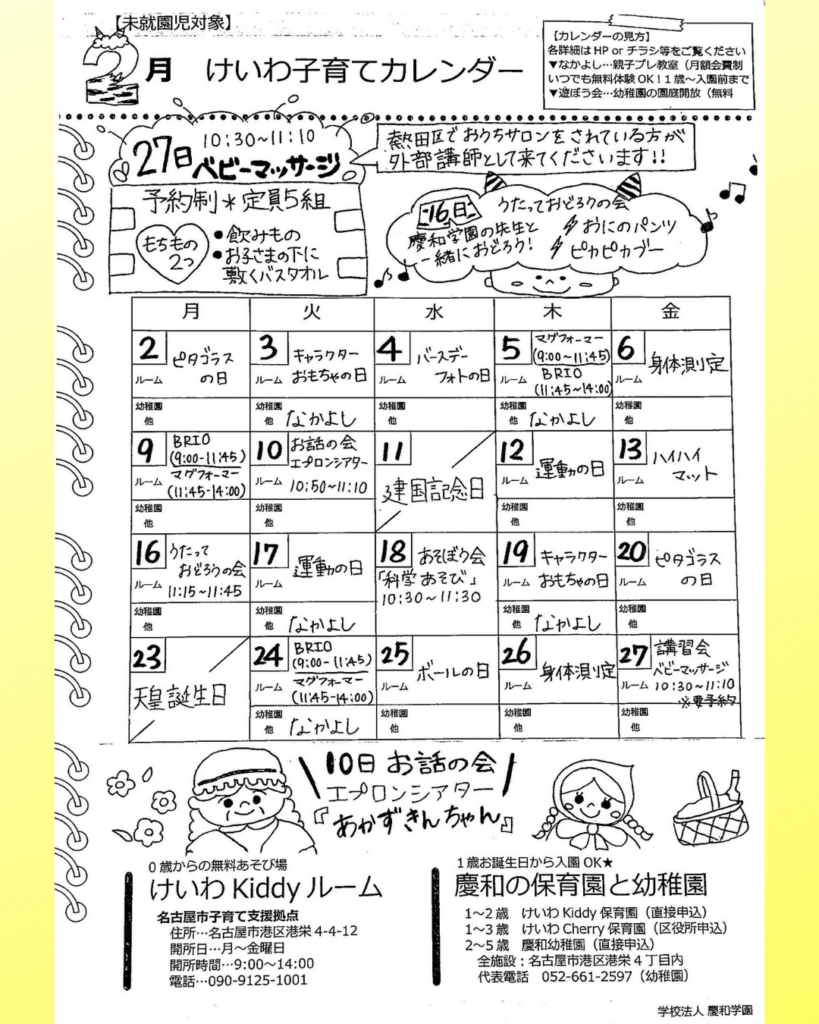 【未就園児対象】
2月 けいわ子育てカレンダー
【カレンダーの見方】
各詳細は HP or チラシ等をご覧ください
▼なかよし…親子プレ教室（月額会費制
いつでも無料体験 OK！1歳～入園前まで
▼遊ぼう会…幼稚園の園庭開放（無料
27日 10:30～11:10
ベビーマッサージ
熱田区でおうちサロンをされている方が
外部講師として来てくださいます!!
予約制＊定員5組
もちもの
2つ
●飲みもの
●お子さまの下に
敷くバスタオル
16日 うたっておどろくの会
慶和学園の先生と
一緒におどろう!
おにのパンツ
ピカピカブー
月 火 水 木 金
2 ルーム ピタゴラス
の日
幼稚園
他
3 ルーム キャラクター
おもちゃの日
幼稚園
他 なかよし
4 ルーム バースデー
フォトの日
幼稚園
他
5 ルーム マグフォーマー
(9:00～11:45)
BRIO
(11:45～14:00)
幼稚園
他 なかよし
6 ルーム 身体測定
幼稚園
他
9 ルーム BRIO
(9:00-11:45)
マグフォーマー
(11:45-14:00)
幼稚園
他
10 ルーム お話の会
エプロンシアター
10:50～11:10
幼稚園
他
11
建国記念日
12 ルーム 運動の日
幼稚園
他
13 ルーム ハイハイ
マット
幼稚園
他
16 ルーム うたって
おどろうの会
11:15～11:45
幼稚園
他
17 ルーム 運動の日
幼稚園
他 なかよし
18 あそぼう会
「科学あそび」
10:30～11:30
19 ルーム キャラクター
おもちゃの日
幼稚園
他 なかよし
20 ルーム ピタゴラス
の日
幼稚園
他
23
天皇誕生日
24 ルーム BRIO
(9:00-11:45)
マグフォーマー
(11:45-14:00)
幼稚園
他 なかよし
25 ルーム ボールの日
幼稚園
他
26 ルーム 身体測定
幼稚園
他
27 ルーム 講習会
ベビーマッサージ
10:30～11:10
※要予約
幼稚園
他
10日 お話の会
エプロンシアター
『あかずきんちゃん』
0歳からの無料あそび場
けいわ Kiddy ルーム
名古屋市子育て支援拠点
住所…名古屋市港区港栄 4-4-12
開所日…月～金曜日
開所時間…9:00～14:00
電話…090-9125-1001
1歳お誕生日から入園 OK★
慶和の保育園と幼稚園
1～2歳 けいわ Kiddy 保育園（直接申込）
1～3歳 けいわ Cherry 保育園（区役所申込）
2～5歳 慶和幼稚園（直接申込）
全施設：名古屋市港区港栄4丁目内
代表電話 052-661-2597（幼稚園）
学校法人 慶和学園